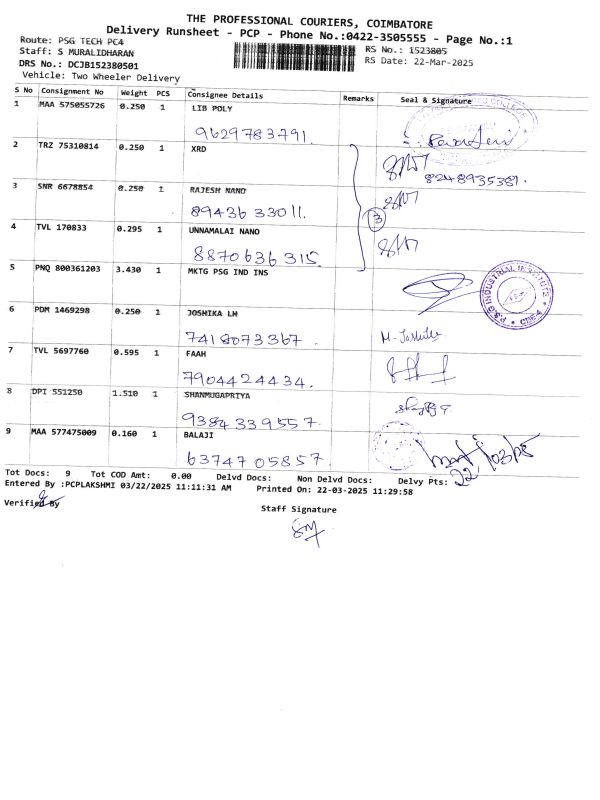 THE PROFESSIONAL COURIERS, COIMBATORE
Delivery Runsheet - PCP - Phone No.:0422-3505555 - Page No.:1
Route: PSG TECH PC4
RS No.: 1523805
Staff: S MURALIDHARAN
RS Date: 22-Mar-2025
DRS No.: DCJB152380501
Vehicle: Two Wheeler Delivery
S No Consignment No Weight PCS Consignee Details Remarks Seal & Signature
1 MAA 575055726 0.250 1 LIB POLY
9629783791.
2 TRZ 75310814 0.250 1 XRD
8248935381.
3 SNR 6678854 0.250 1 RAJESH NANO
8943633011.
3
4 TVL 170833 0.295 1 UNNAMALAI NANO
8870636315.
5 PNQ 800361203 3.430 1 MKTG PSG IND INS
P.S.G INDUSTRIAL INSTITUTE * CBE-4 *
6 PDM 1469298 0.250 1 JOSHIKA LH
7418073367.
7 TVL 5697760 0.595 1 FAAH
7904424434.
8 DPI 551250 1.510 1 SHANMUGAPRIYA
9384339557.
9 MAA 577475009 0.160 1 BALAJI
6374705857
Tot Docs: 9 Tot COD Amt: 0.00 Delvd Docs: Non Delvd Docs: Delvy Pts:
Entered By :PCPLAKSHMI 03/22/2025 11:11:31 AM Printed On: 22-03-2025 11:29:58
Verified By
Staff Signature